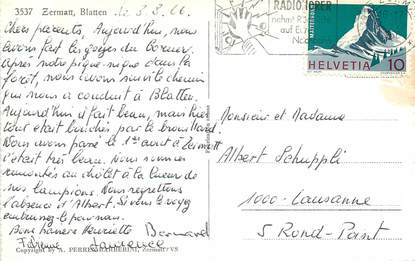 3537 Zermatt, Blatten
le 3.8.66
Chers parents, Aujourd'hui, nous
avons fait les gorges du Gorner.
Après notre pique-nique dans la
forêt, nous avons suivi le chemin
qui nous a conduit à Blatten.
Aujourd'hui il fait beau, mais hier
tout était bouché par le brouillard.
Nous avons passé le 1er août à Zermatt
c'était très beau. Nous sommes
remontés au châlet à la lueur de
nos lampions. Nous regrettons
l'absence d'Albert. Si vous le voyez
embrassez le
Bons baisers Henriette Bernard
Fabienne Laurence
Copyright by A. PERREN-BARBERINI, Zermatt/VS
RADIOHÖRER
nehmt Rücksicht
auf Eure
Nachbarn
MATTERHORN
HELVETIA 10
Monsieur et Madame
Albert Schuppli
1000 - Lausanne
5 Rond-Point